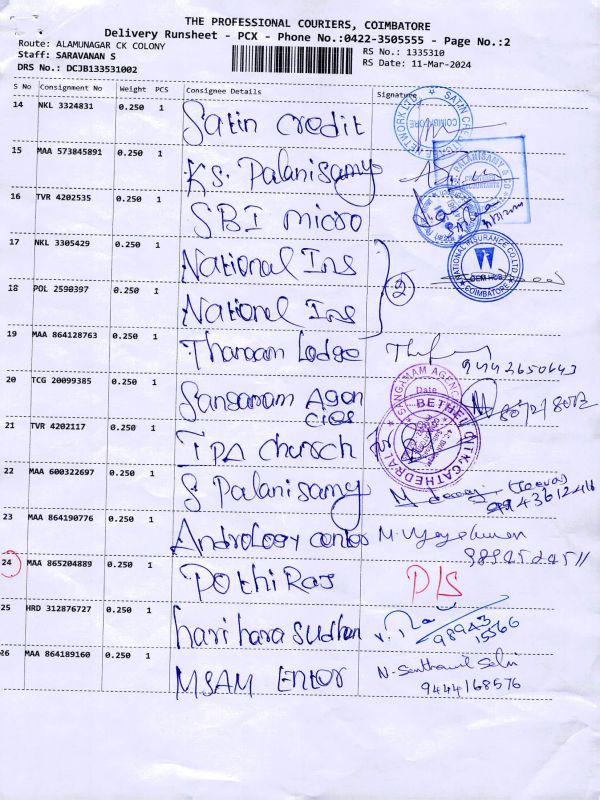 THE PROFESSIONAL COURIERS, COIMBATORE
Delivery Runsheet - PCX - Phone No.:0422-3505555 - Page No.:2
Route: ALAMUNAGAR CK COLONY
RS No.: 1335310
Staff: SARAVANAN S
RS Date: 11-Mar-2024
DRS No.: DCJB133531002
S No Consignment No Weight PCS Consignee Details Signature
14 NKL 3324831 0.250 1 Satin credit
15 MAA 573845891 0.250 1 KS. Palanisamy
16 TVR 4202535 0.250 1 SBI micro
17 NKL 3305429 0.250 1 National Ins
2
NATIONAL INSURANCE CO.LTD.
COIMBATORE
18 POL 2590397 0.250 1 National Ins
19 MAA 864128763 0.250 1 Lodge
9442650643
20 TCG 20099385 0.250 1 Sangamam Agencies
SANGAMAM AGENC
Date
21 TVR 4202117 0.250 1 TPA church
For
CATHEDRAL
22 MAA 600322697 0.250 1 S Palanisamy
23 MAA 864190776 0.250 1 Andrology center
24 MAA 865204889 0.250 1 Pothi Raj D/S
25 HRD 312876727 0.250 1 harihara Sudhan
98943
15566
26 MAA 864189160 0.250 1 MSAM Enter N. Senthamil Selvi
9444168576